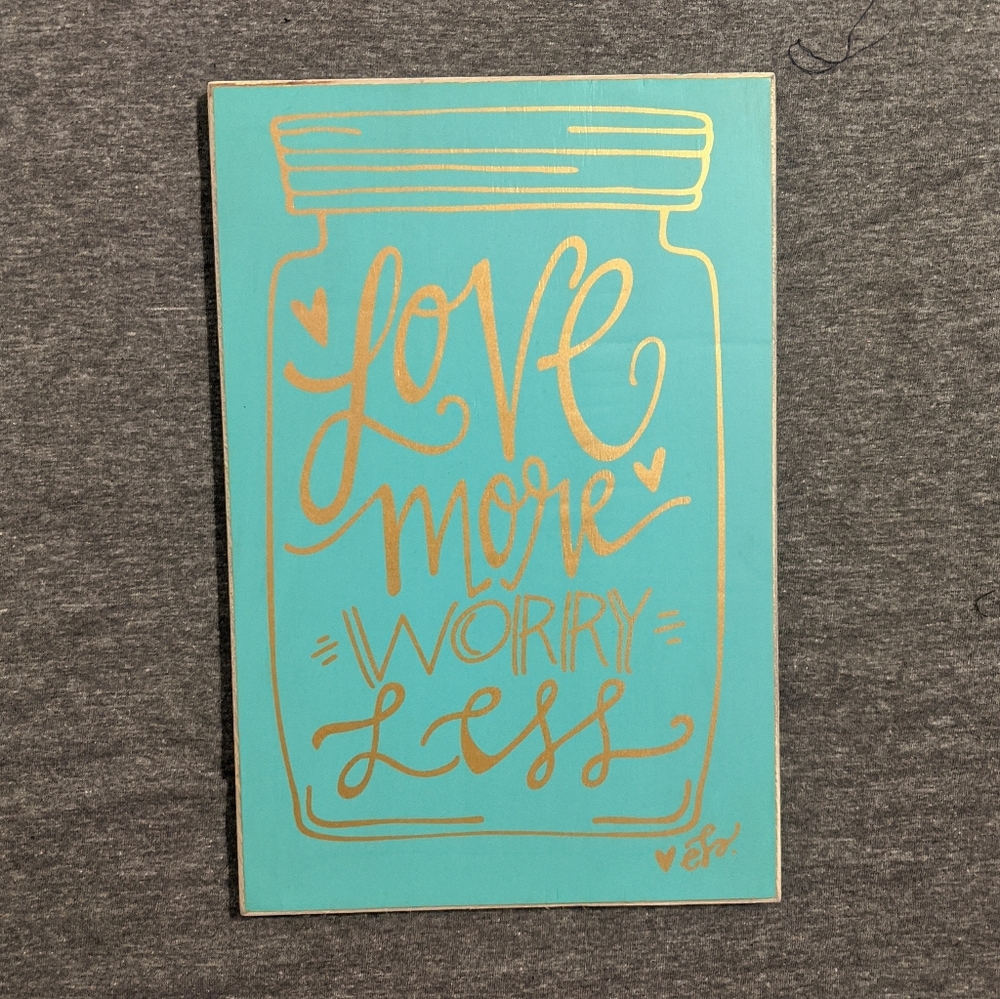 Love
more
WORRY
Less